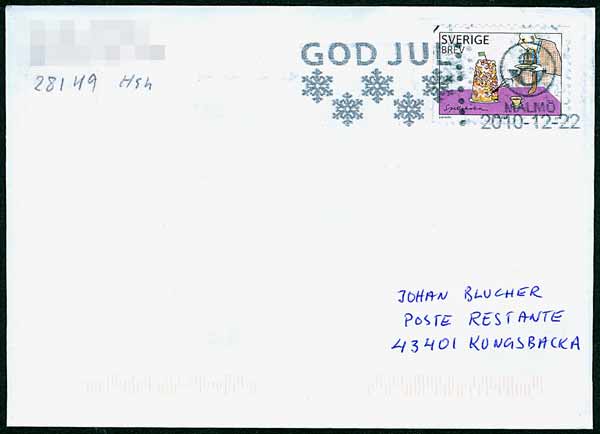 28149 Hsh
GOD JUL
SVERIGE
BREV
MALMÖ
2010-12-22
JOHAN BLUCHER
POSTE RESTANTE
43401 KUNGSBACKA